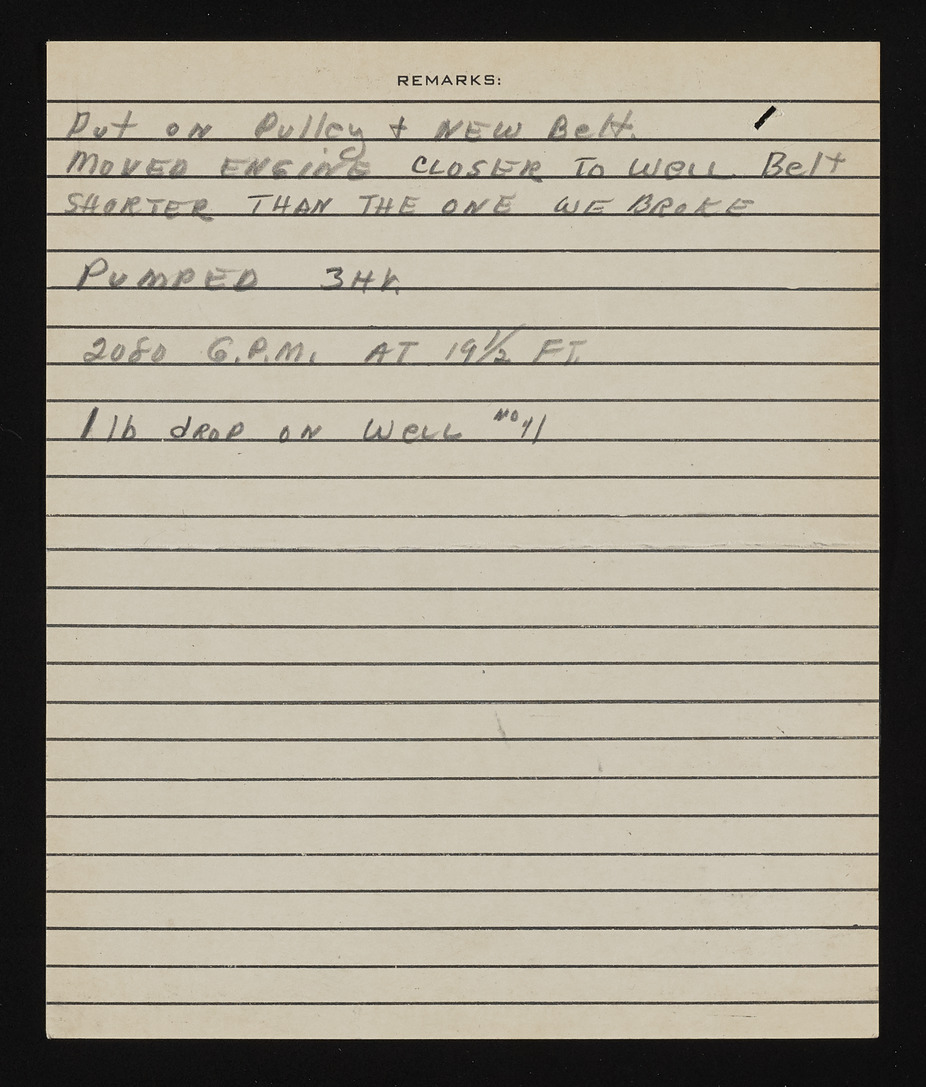 REMARKS:
Put on Pulley + NEW Belt.
MOVED ENGINE CLOSER To Well Belt
SHORTER THAN THE ONE WE BROKE
PUMPED 3 HR.
2080 G.P.M. AT 19 1/2 FT.
1 lb drop on Well No